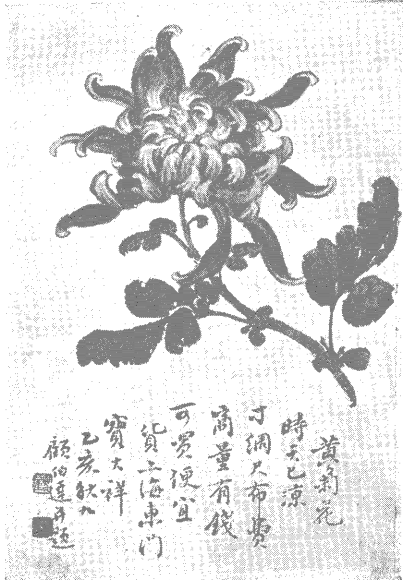 黃菊花
時天已涼
寸綢尺布費
商量有錢
可買便宜
貨上海東門
寶大祥
乙亥秋九
顧伯逵并題